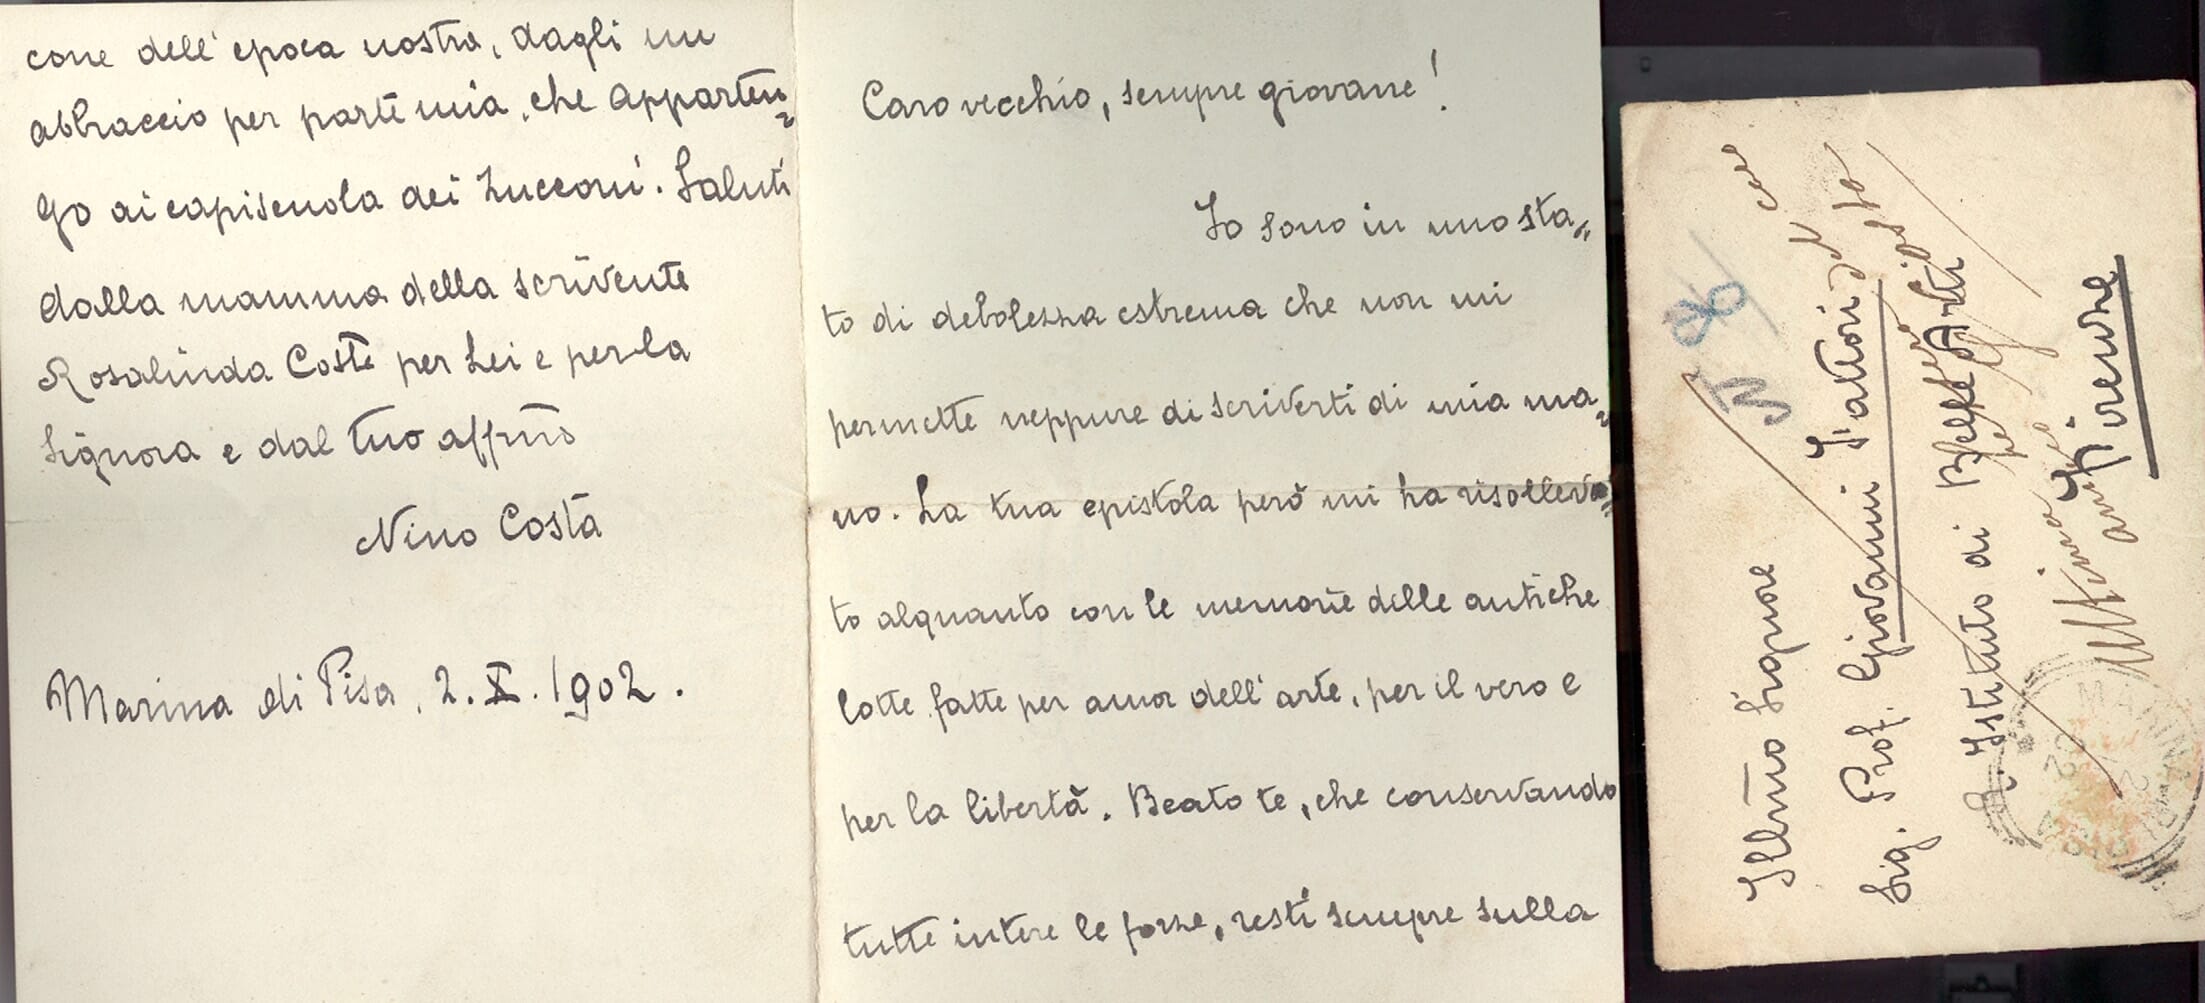 Caro vecchio, sempre giovane!
Io sono in uno sta„
to di debolezza estrema che non mi
permette neppure di scriverti di mia ma„
no. La tua epistola però mi ha risolleva„
to alquanto con le memorie delle antiche
lotte fatte per amor dell'arte, per il vero e
per la libertà. Beato te, che conservando
tutte intere le forze, resti sempre sulla
cone dell'epoca nostra, dagli un
abbraccio per parte mia, che apparten„
go ai capiscuola dei zucconi. Saluti
dalla mamma della scrivente
Rosalinda Coste per Lei e per la
Signora e dal tuo affmo
Nino Costa
Marina di Pisa, 2.X.1902.
Illmo Signore
Sig. Prof. Giovanni Fattori
R. Istituto di Belle Arti
Firenze
MARINA
PISA